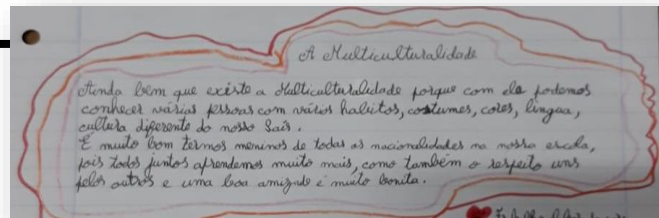 A Multiculturalidade
Ainda bem que existe a Multiculturalidade porque com ela podemos
conhecer várias pessoas com vários habitos, costumes, cores, lingua,
cultura diferente do nosso País.
É muito bom termos meninos de todas as nacionalidades na nossa escola,
pois todos juntos aprendemos muito mais, como também o respeito uns
pelos outros e uma boa amizade é muito bonita.